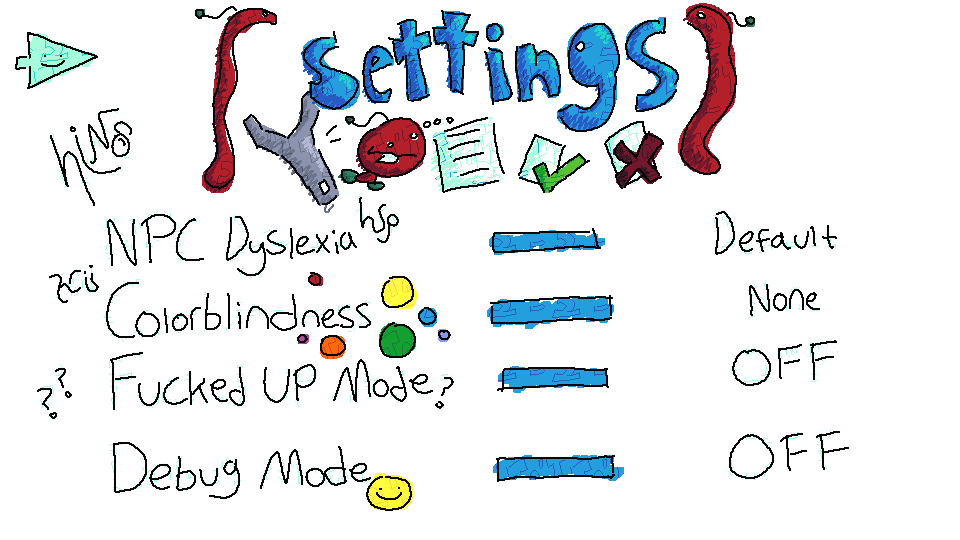 settings
NPC Dyslexia Default
Colorblindness None
Fucked UP Mode? OFF
??
Debug Mode OFF